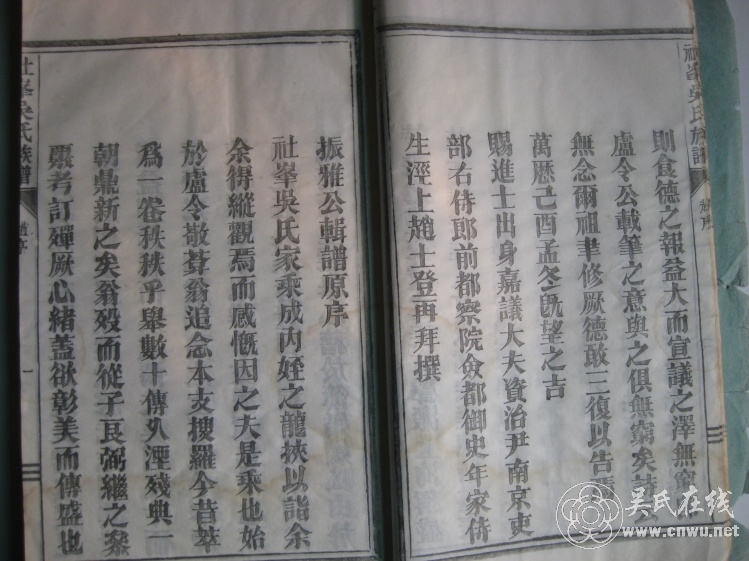 則食德之報益大而宣議之澤無窮
盧令公載筆之意與之俱無窮矣詩
無念爾祖聿修厥德敢三復以告焉
萬歷己酉孟冬既望之吉
賜進士出身嘉議大夫資治尹南京吏
部右侍郎前都察院僉都御史年家侍
生涇上趙士登再拜撰
社峯吳氏族譜
趙序
振雅公輯譜原序
社峯吳氏家乘成內姪之龍挾以詣余
余得縱觀焉而感慨因之夫是乘也始
於盧令敬葊翁追念本支搜羅今昔萃
爲一卷秩秩乎舉數十傳久湮殘典一
朝鼎新之矣翁歿而從子良弼繼之叅
票考訂殫厥心緒蓋欲彰美而傳盛也
社峯吳氏族譜
一
吴氏在线
www.cnwu.net